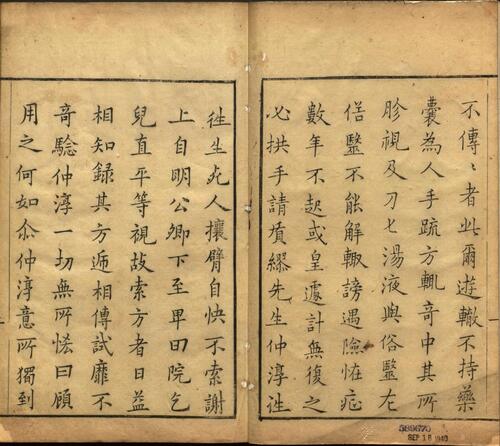 不傳〻者此爾遊轍不持藥
囊為人手疏方輒奇中其所
胗視及刀匕湯液與俗毉左
俗毉不能解輙謗遇險恠症
數年不起或皇遽計無復之
必拱手請質繆先生仲淳徃
徃生死人攘臂自快不索謝
上自明公卿下至卑田院乞
兒直平等視故索方者日益
相知録其方逓相傳試靡不
竒驗仲淳一切無所恡曰顧
用之何如尒仲淳意所獨到
SEP 18 1940